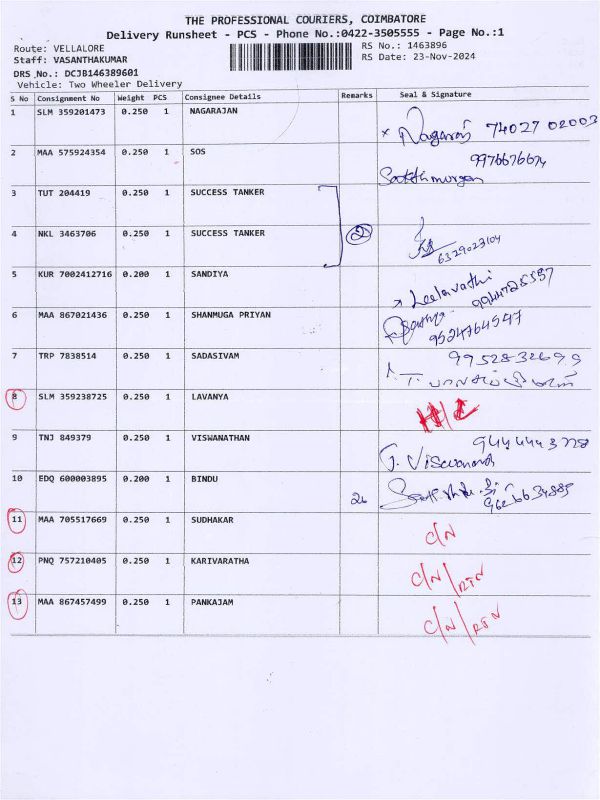 THE PROFESSIONAL COURIERS, COIMBATORE
Delivery Runsheet - PCS - Phone No.:0422-3505555 - Page No.:1
Route: VELLALORE RS No.: 1463896
Staff: VASANTHAKUMAR RS Date: 23-Nov-2024
DRS.No.: DCJB146389601
Vehicle: Two Wheeler Delivery
S No Consignment No Weight PCS Consignee Details Remarks Seal & Signature
1 SLM 359201473 0.250 1 NAGARAJAN Nagaraj 74027 02003
2 MAA 575924354 0.250 1 SOS 9976676674
Sakthimurgan
3 TUT 204419 0.250 1 SUCCESS TANKER
4 NKL 3463706 0.250 1 SUCCESS TANKER 2 6329023104
5 KUR 7002412716 0.200 1 SANDIYA Leelavathi
6 MAA 867021436 0.250 1 SHANMUGA PRIYAN 9524764547
7 TRP 7838514 0.250 1 SADASIVAM 9952832699
8 SLM 359238725 0.250 1 LAVANYA
9 TNJ 849379 0.250 1 VISWANATHAN 9444443778
J. Viswanath
10 EDQ 600003895 0.200 1 BINDU 26
11 MAA 705517669 0.250 1 SUDHAKAR C/N
12 PNQ 757210405 0.250 1 KARIVARATHA C/N/RTN
13 MAA 867457499 0.250 1 PANKAJAM C/N/RTN